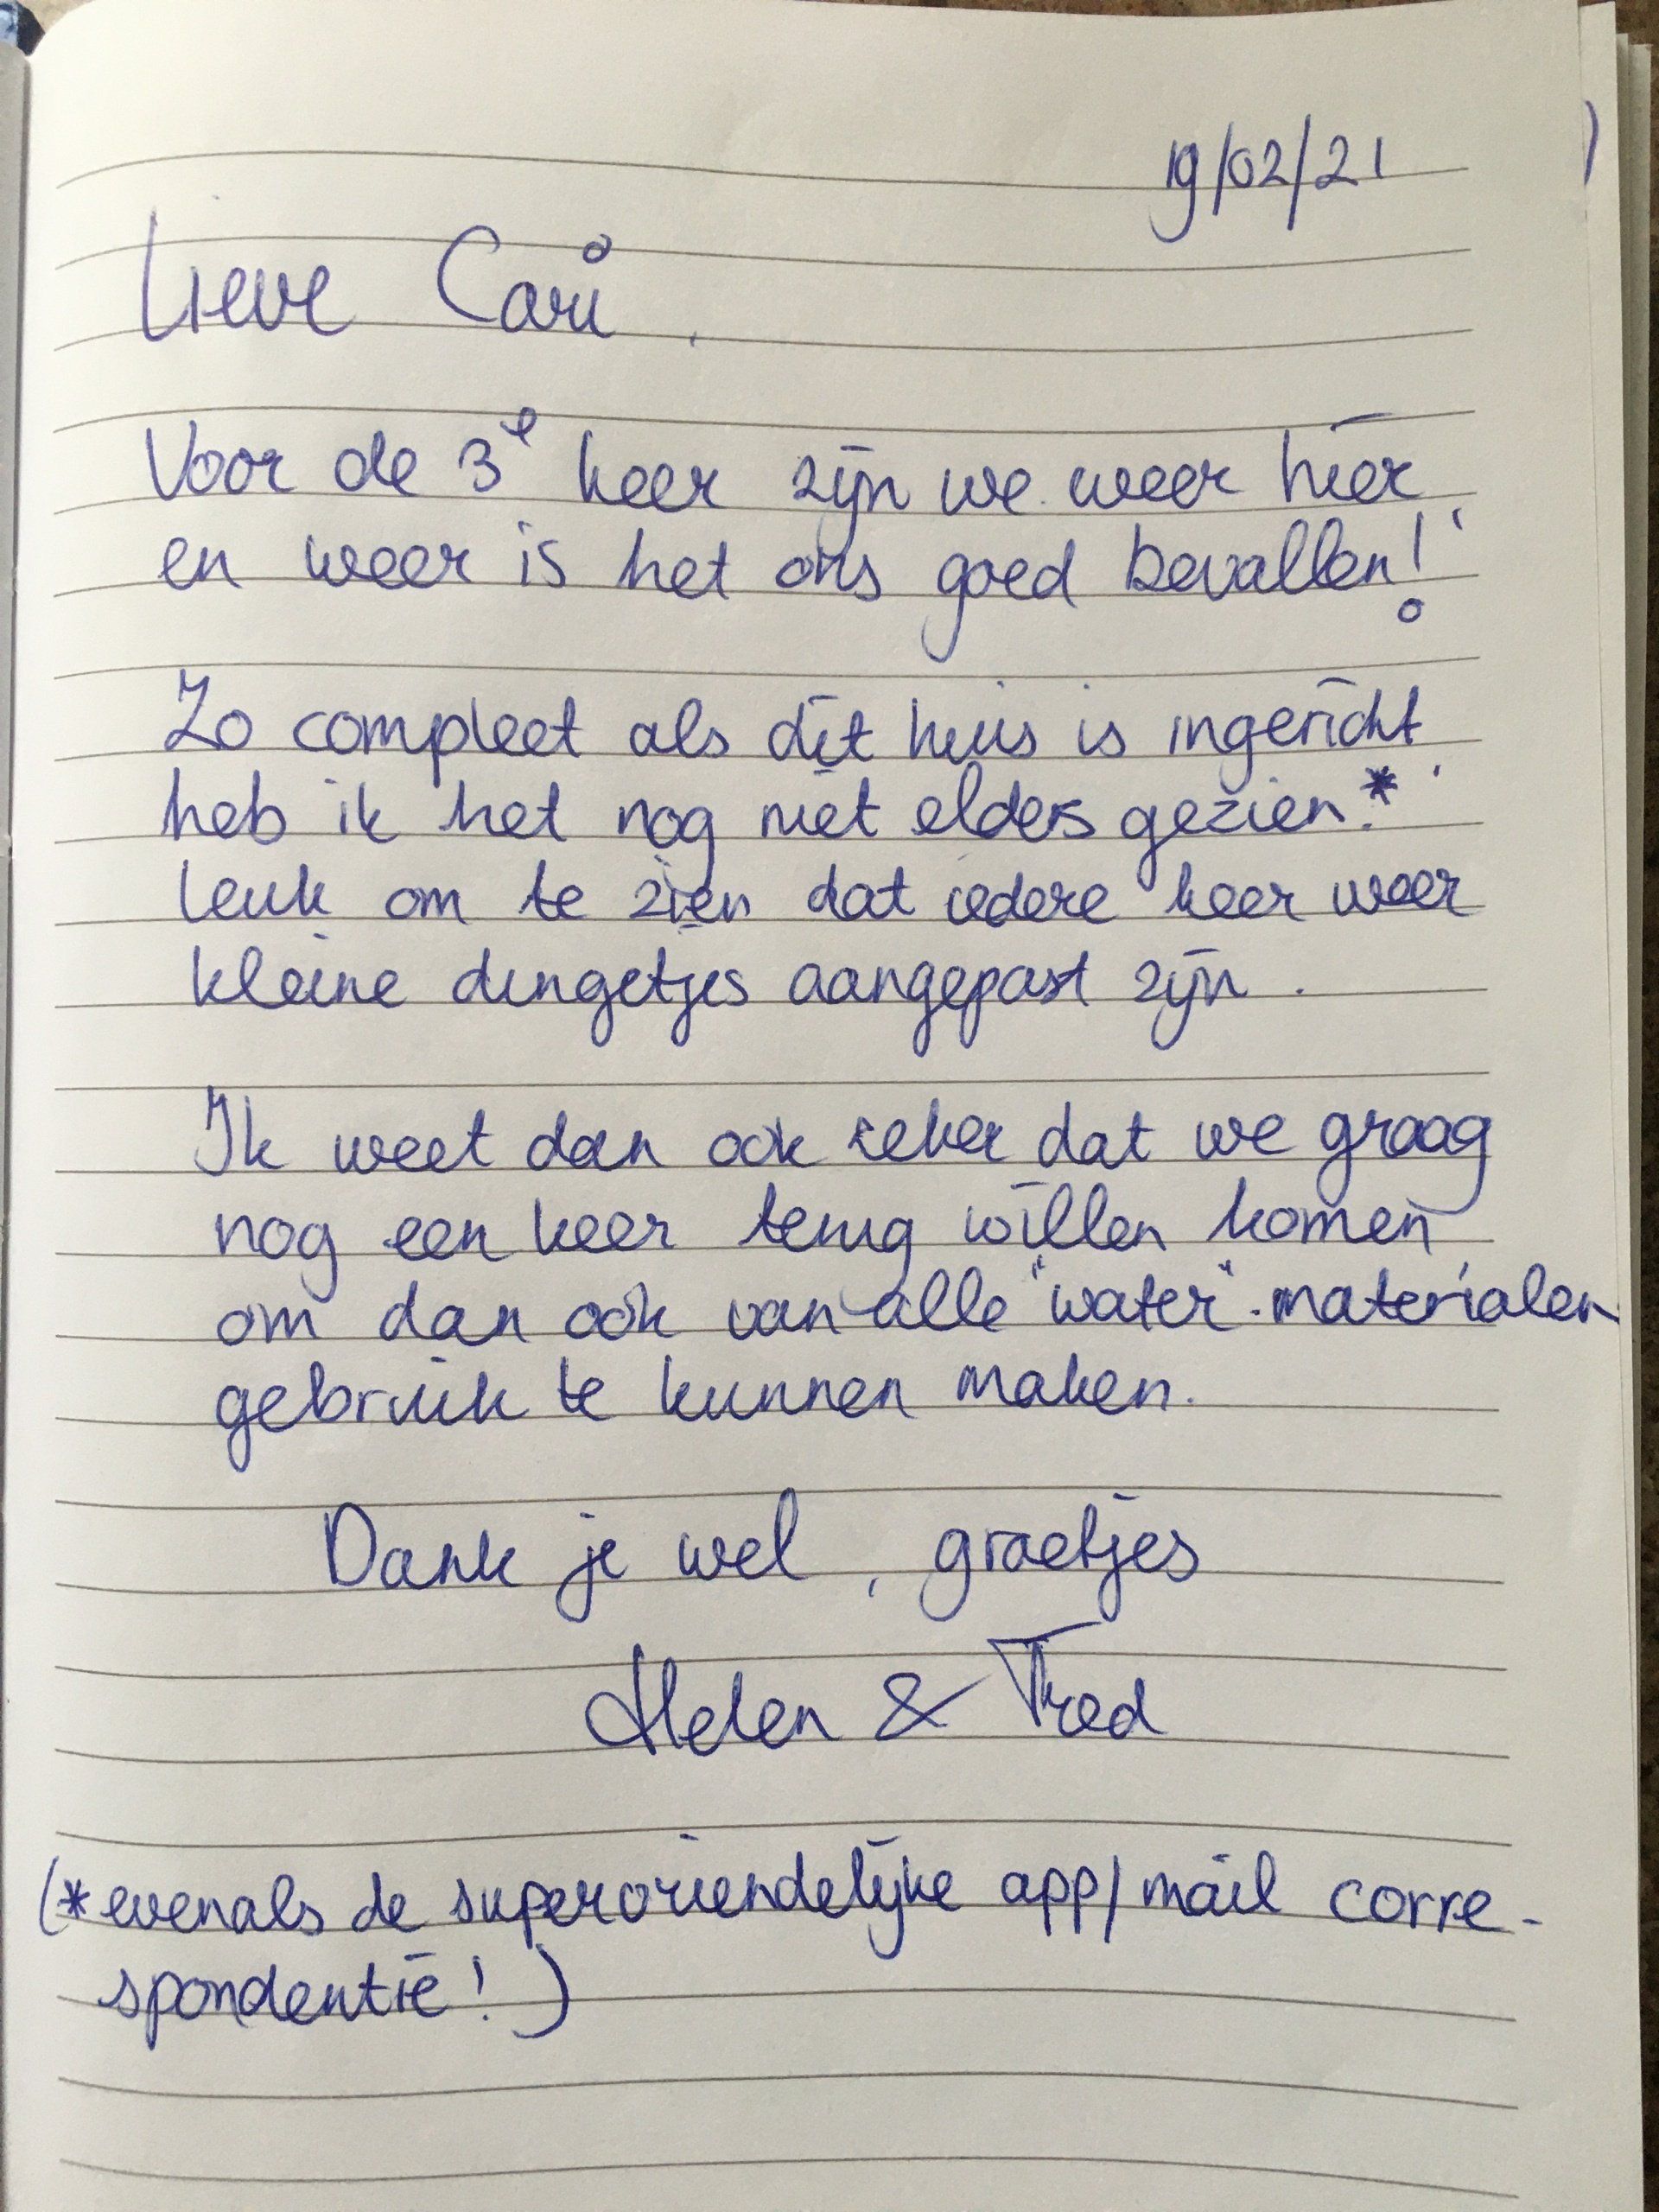 19/02/21
Lieve Cari,
Voor de 3e keer zijn we weer hier,
en weer is het ons goed bevallen!
Zo compleet als dit huis is ingericht,
heb ik het nog niet elders gezien.*
Leuk om te zien dat iedere keer weer
kleine dingetjes aangepast zijn.
Ik weet dan ook zeker dat we graag
nog een keer terug willen komen,
om dan ook van alle "water"-materialen
gebruik te kunnen maken.
Dank je wel, groetjes
Helen & Fred
(*evenals de supervriendelijke app/mail corre-
spondentie!)